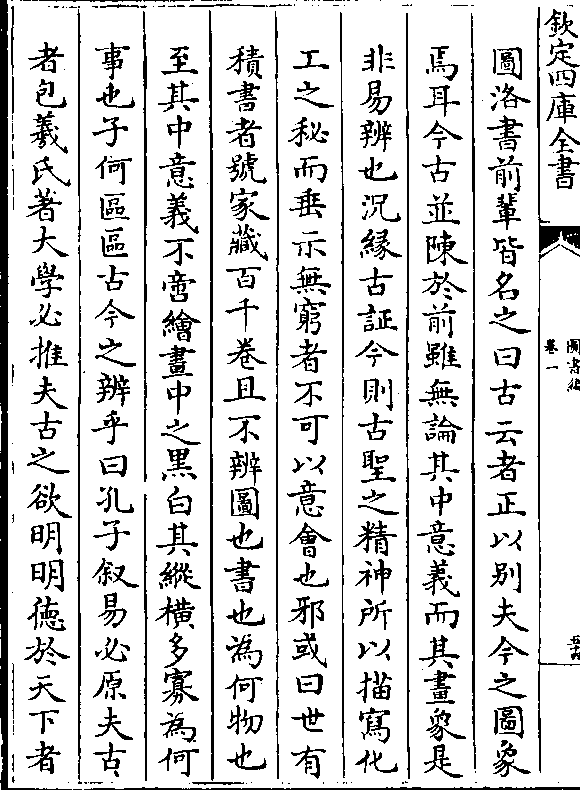 欽定四庫全書
圖書編
卷一
圖洛書前輩皆名之曰古云者正以別夫今之圖象
焉耳今古並陳於前雖無論其中意義而其畫象是
非易辨也況緣古証今則古聖之精神所以描寫化
工之秘而垂示無窮者不可以意會也邪或曰世有
積書者號家藏百千卷且不辨圖也書也為何物也
至其中意義不啻繪畫中之黑白其縱橫多寡為何
事也子何區區古今之辨乎曰孔子叙易必原夫古
者包羲氏著大學必推夫古之欲明明德於天下者